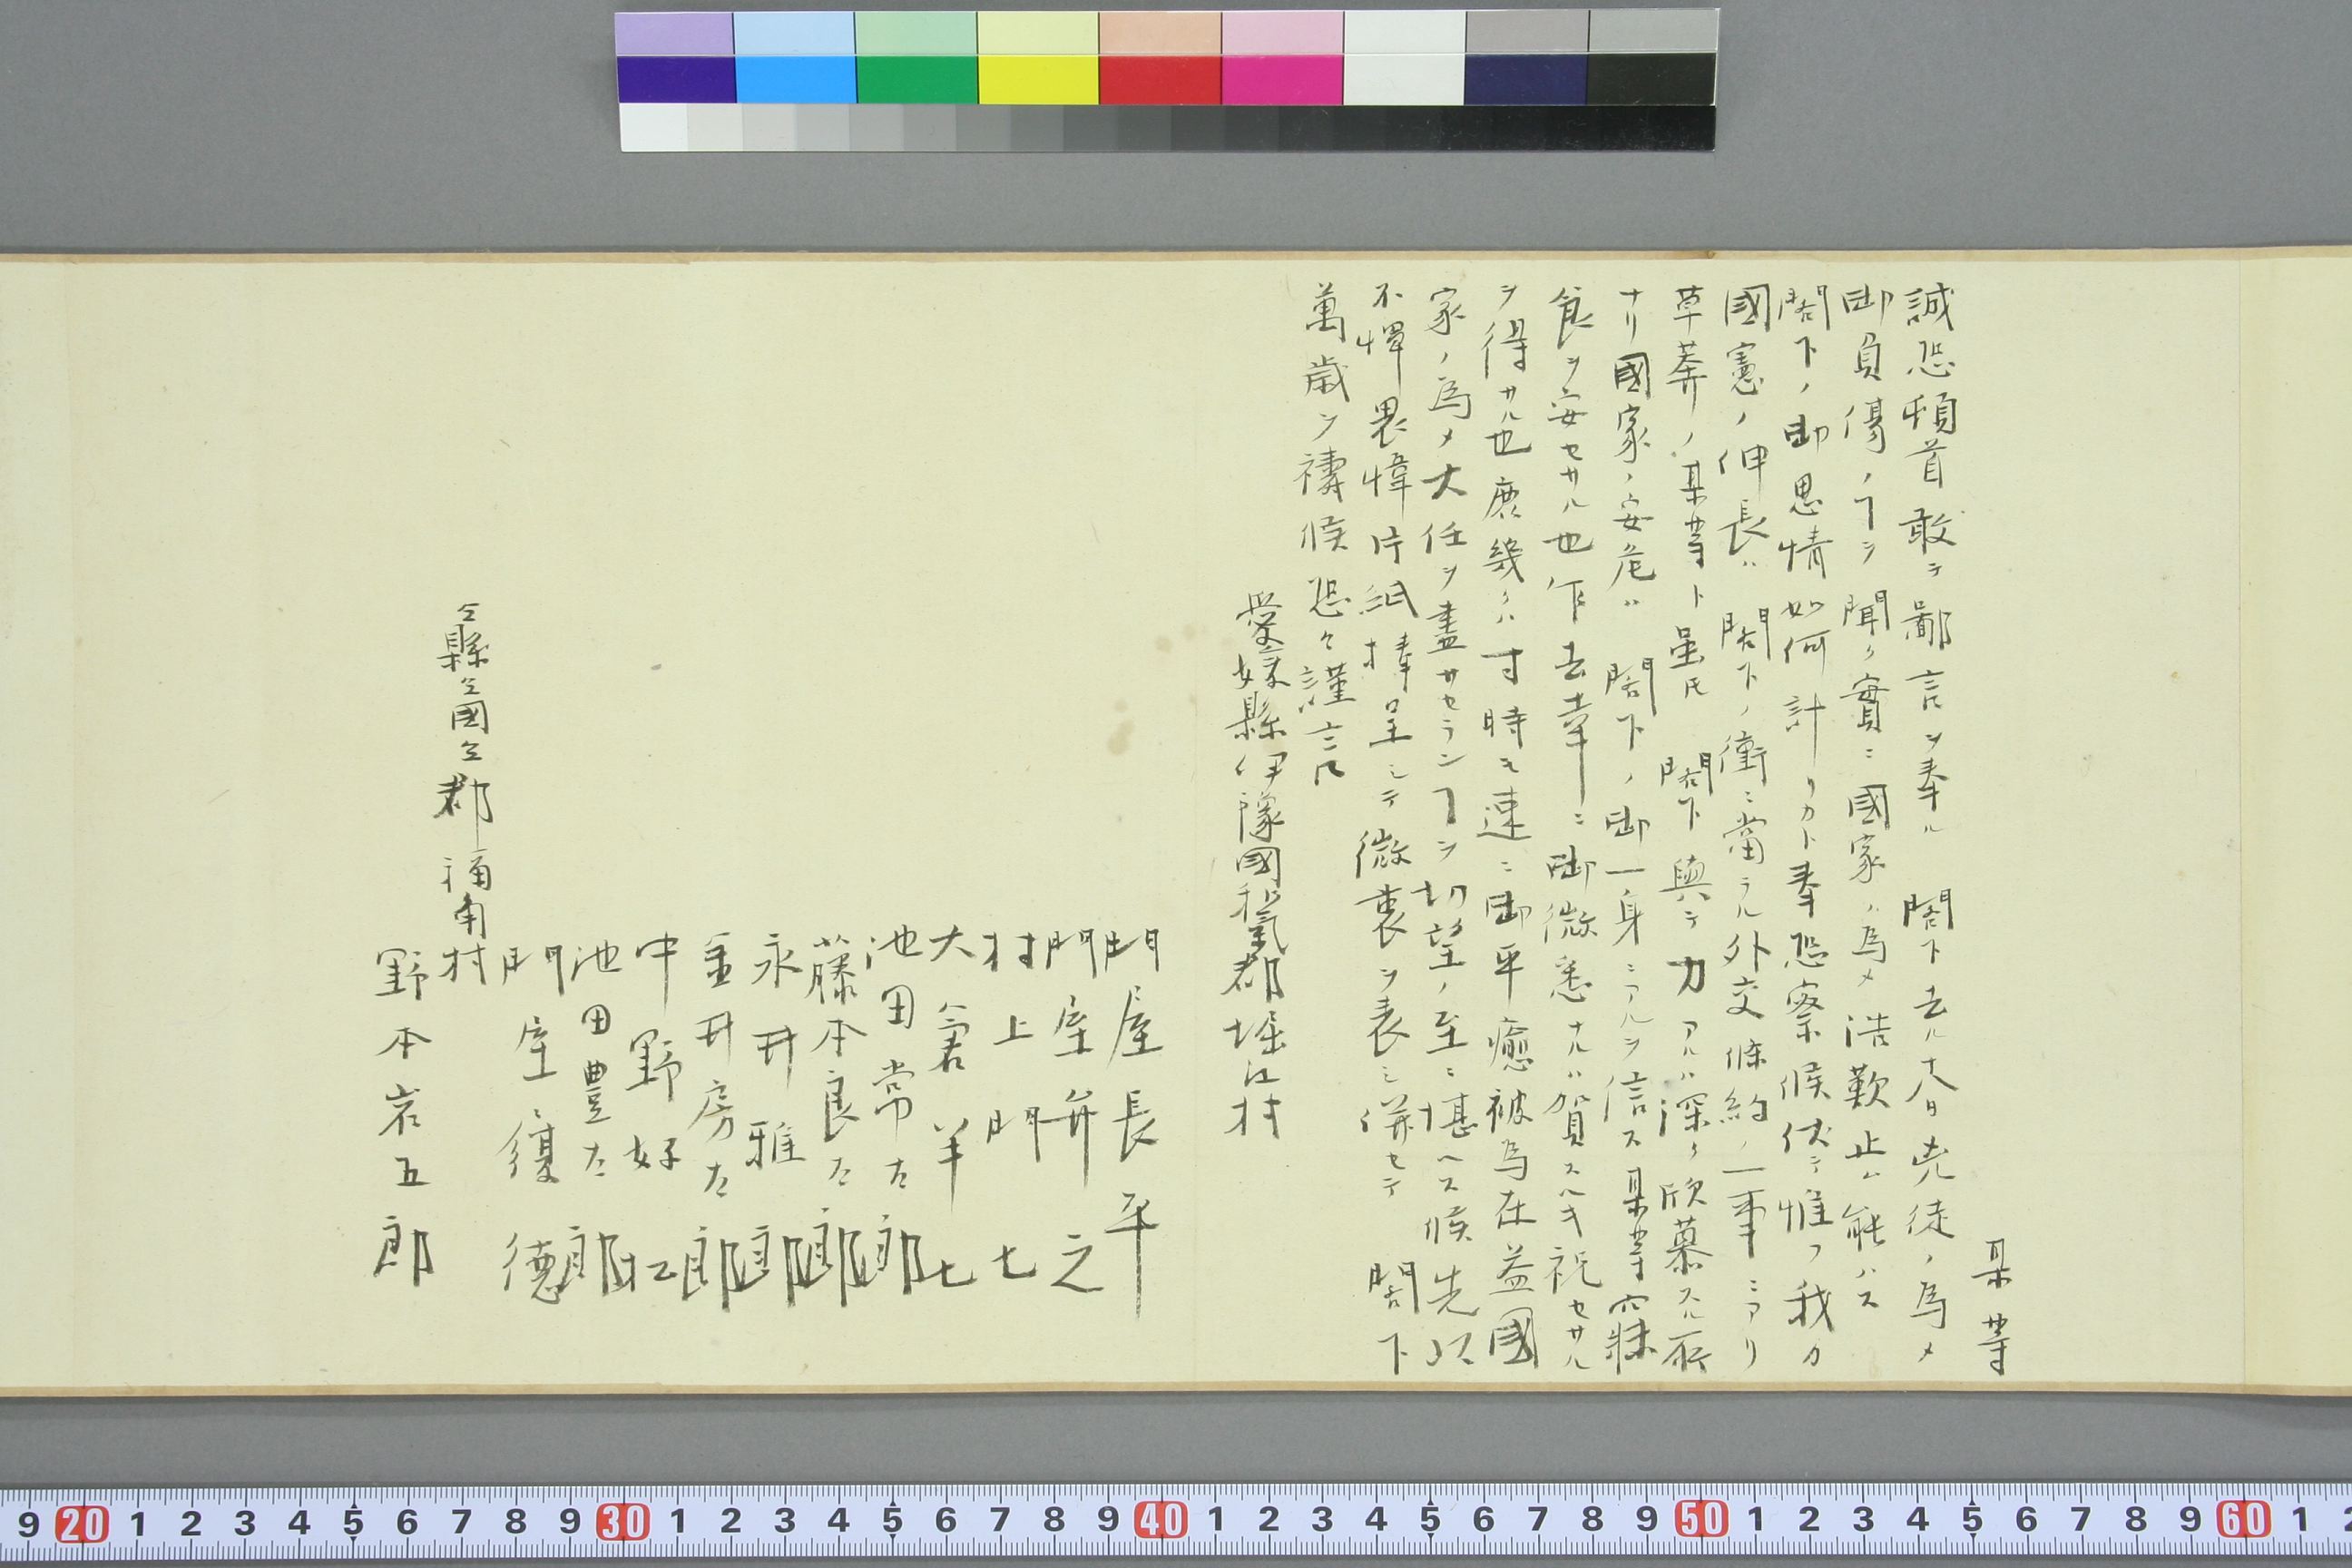 某等
誠恐頓首敢テ鄙言ヲ奉ル　閣下去ル十八日兇徒ノ為メ
御負傷ノヿヲ聞ク實ニ國家ノ為メ浩歎止ム能ハス
閣下ノ御思情如何計リカト奉恐察候伏テ惟フ我カ
國憲ノ伸長ハ　閣下ノ衝ニ當ラル外交條約ノ一事ニアリ
草莽ノ某等ト虽𪜈　閣下與テ力アルハ深ク欣慕スル所
ナリ國家ノ安危ハ　閣下ノ御一身ニアルヲ信ス某等寤寐
食ヲ安セサル也乍去幸ニ御微恙ナルハ賀スヘキ祝セサル
ヲ得サル也庶幾クハ寸時モ速ニ御平癒被為在益國
家ノ為メ大任ヲ盡サセランヿヲ切望ノ至ニ堪ヘス候先以
不憚畏憚片紙捧呈シテ微衷ヲ表シ併セテ　閣下
萬歳ヲ禱候恐々謹言
愛媛縣伊豫國和氣郡堀江村
門屋長平
門屋弁之
村上門七
大倉羊七
池田常太郎
藤本良太郎
永井雅郎
金井房太郎
中野好松
池田豊太郎
門屋復德
仝縣仝國仝郡福角村
野本岩五郎
9 20 1 2 3 4 5 6 7 8 9 30 1 2 3 4 5 6 7 8 9 40 1 2 3 4 5 6 7 8 9 50 1 2 3 4 5 6 7 8 9 60 1 2